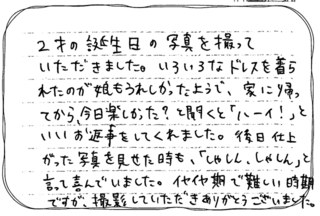 2才の誕生日の写真を撮って
いただきました。いろいろなドレスを着ら
れたのが娘もうれしかったようで、家に帰っ
てから、今日楽しかった？と聞くと「ハーイ！」と
いいお返事をしてくれました。後日仕上
がった写真を見せた時も、「しゃしん、しゃしん」と
言って喜んでいました。イヤイヤ期で難しい時期
ですが、撮影していただきありがとうございました。